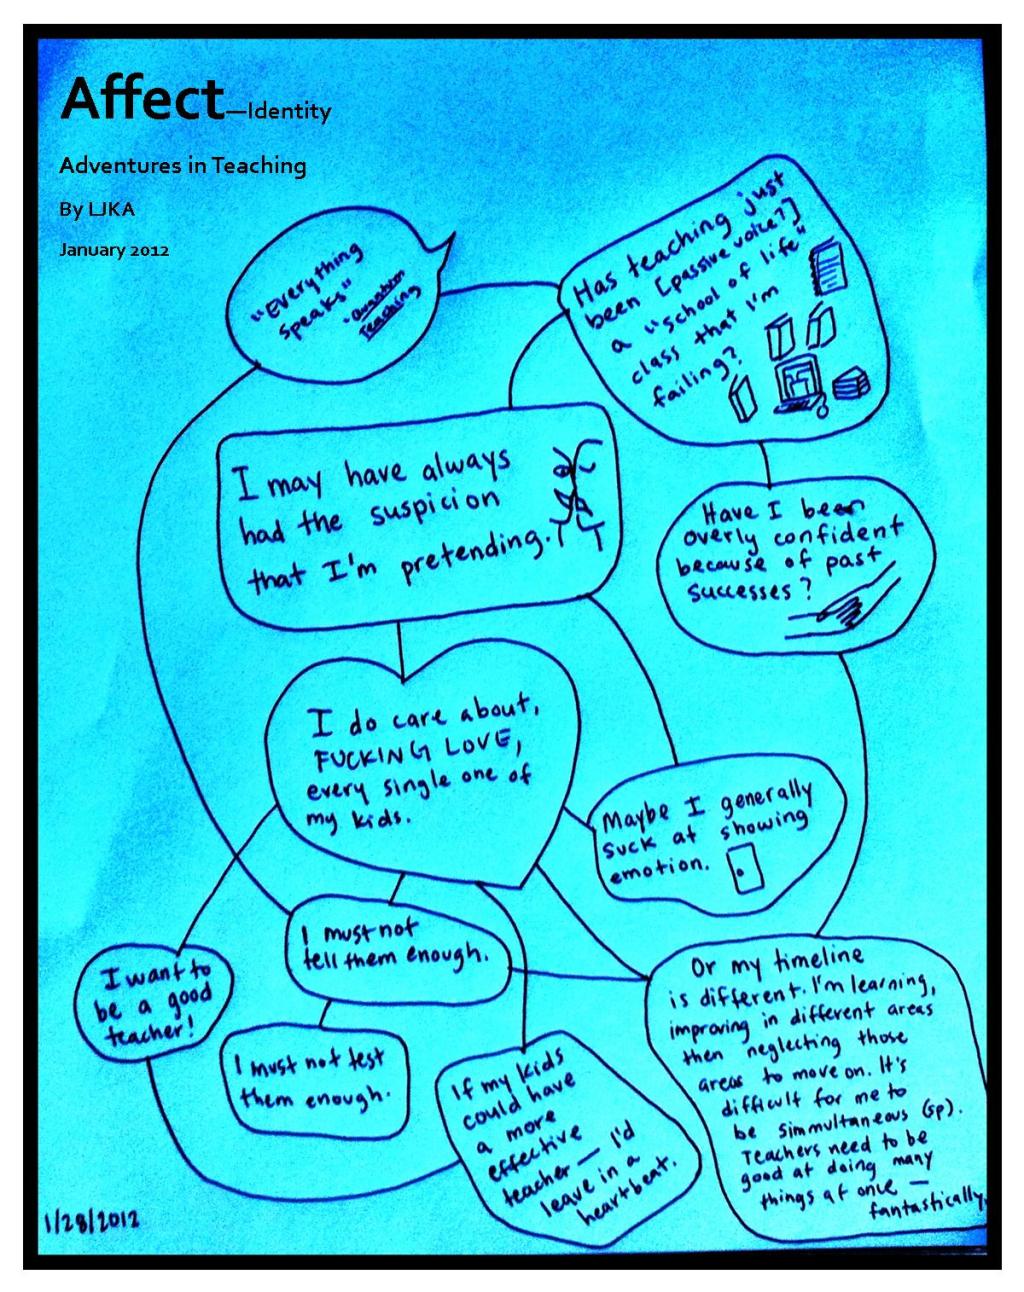 Affect—Identity
Adventures in Teaching
By LJKA
January 2012
"Everything
speaks"
"Quantum
Teaching
Has teaching just
been [passive voice?]
a "school of life"
class that I'm
failing?
I may have always
had the suspicion
that I'm pretending.
Have I been
overly confident
because of past
successes?
I do care about,
FUCKING LOVE,
every single one of
my kids.
Maybe I generally
suck at showing
emotion.
I must not
tell them enough.
I want to
be a good
teacher!
I must not test
them enough.
If my kids
could have
a more
effective
teacher — I'd
leave in a
heartbeat.
Or my timeline
is different. I'm learning,
improving in different areas
then neglecting those
areas to move on. It's
difficult for me to
be simmultaneous (sp).
Teachers need to be
good at doing many
things at once —
fantastically.
1/28/2012